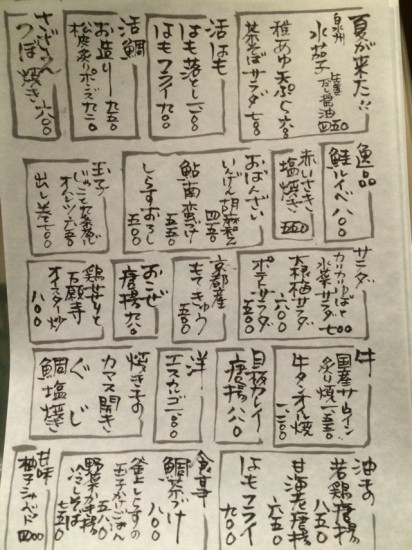 夏が来た!!
泉州
水茄子
生姜
醤油 四五〇
稚あゆ天ぷら 六八〇
茶そばサラダ 七八〇
活はも
はも落とし 一二八〇
はもフライ 九八〇
活鯛
お造り 九五〇
松皮炙りポン酢 九二〇
さざえ
つぼ焼き 六八〇
逸品
鮭ルイベ 八八〇
赤いさき
塩焼き
おばんざい
いんげん胡麻和え 四五〇
鮎南蛮づけ 五五〇
しらすおろし 五五〇
玉子
じゃこと
オムレツ 六五〇
出し巻 七〇〇
サラダ
カリカリゆばと
水菜サラダ 七〇〇
大根梅サラダ 六〇〇
ポテトサラダ 五〇〇
京都産
もてきゅう 五〇〇
おこぜ
唐揚 九八〇
鶏せせりと
万願寺
オイスター炒 八〇〇
牛
国産サーロイン
炙り焼 一五五〇
牛タンオイル焼 一二五〇
目板カレイ
唐揚 八八〇
洋
エスカルゴ 一二〇〇
焼き子の
カマス開き
ぐじ
鯛塩焼き
油もの
若鶏唐揚 八五〇
甘海老唐揚 六五〇
はもフライ 九八〇
食事
鯛茶づけ 八〇〇
釜上しらすの
玉子かけごはん 五八〇
野菜かき揚
冷しそば 七五〇
甘味
柚子シャーベット 四〇〇